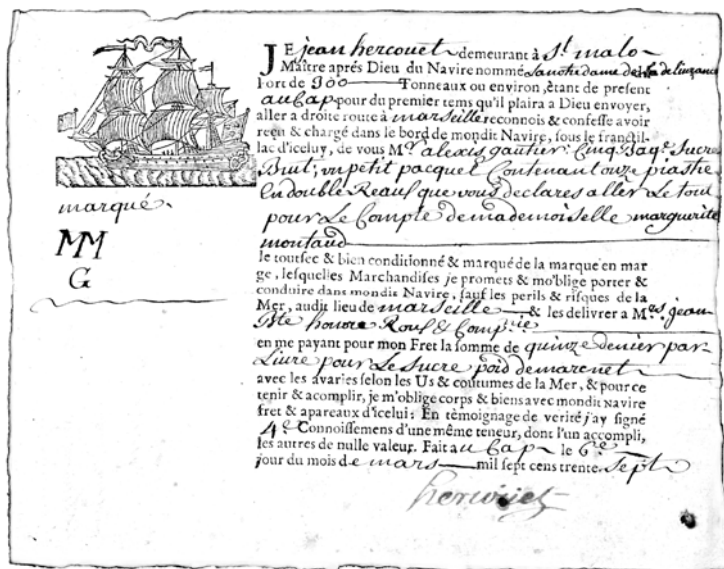 JE jean hercouet demeurant à St. malo
Maître aprés Dieu du Navire nommé La notre dame de
Port de 300 Tonneaux ou environ, étant de present
au Cap pour du premier tems qu'il plaira a Dieu envoyer,
aller a droite route à marseille reconnois & confesse avoir
reçû & chargé dans le bord de mondit Navire, sous le franc til-
lac d'iceluy, de vous Mr. alexis gautier: Cinq Baqe. Sucre
Brut; un petit pacquet Contenant onze piastre
En double Reaux que vous declares aller Le tout
pour Le Compte de mademoiselle marguerite
montaud
marqué.
MM
G
le tout sec & bien conditionné & marqué de la marque en mar
ge, lesquelles Marchandises je promets & m'oblige porter &
conduire dans mondit Navire, sauf les perils & risques de la
Mer, audit lieu de marseille & les delivrer a Mrs. jean
Bte honoré Roux & Compnie
en me payant pour mon Fret la somme de quinze denier par
Livre pour Le Sucre poid de marc net
avec les avaries selon les Us & coutumes de la Mer, & pour ce
tenir & acomplir, je m'oblige corps & biens avec mondit Navire
fret & apareaux d'icelui: En tèmoignage de verité j'ay signé
4e. Connoissemens d'une même teneur, dont l'un accompli,
les autres de nulle valeur. Fait au Cap le 6e
jour du mois de mars mil sept cens trente Sept
hercouet